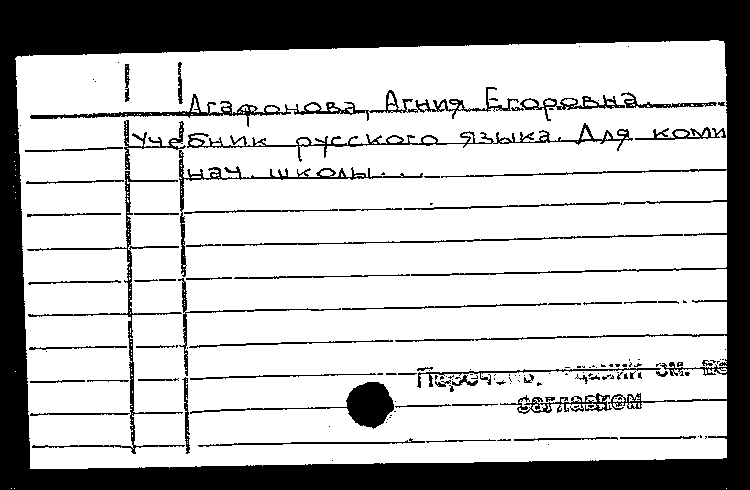 Агафонова, Агния Егоровна.
Учебник русского языка. Для коми
нач. школы...
Перечень изданий см. под
заглавием